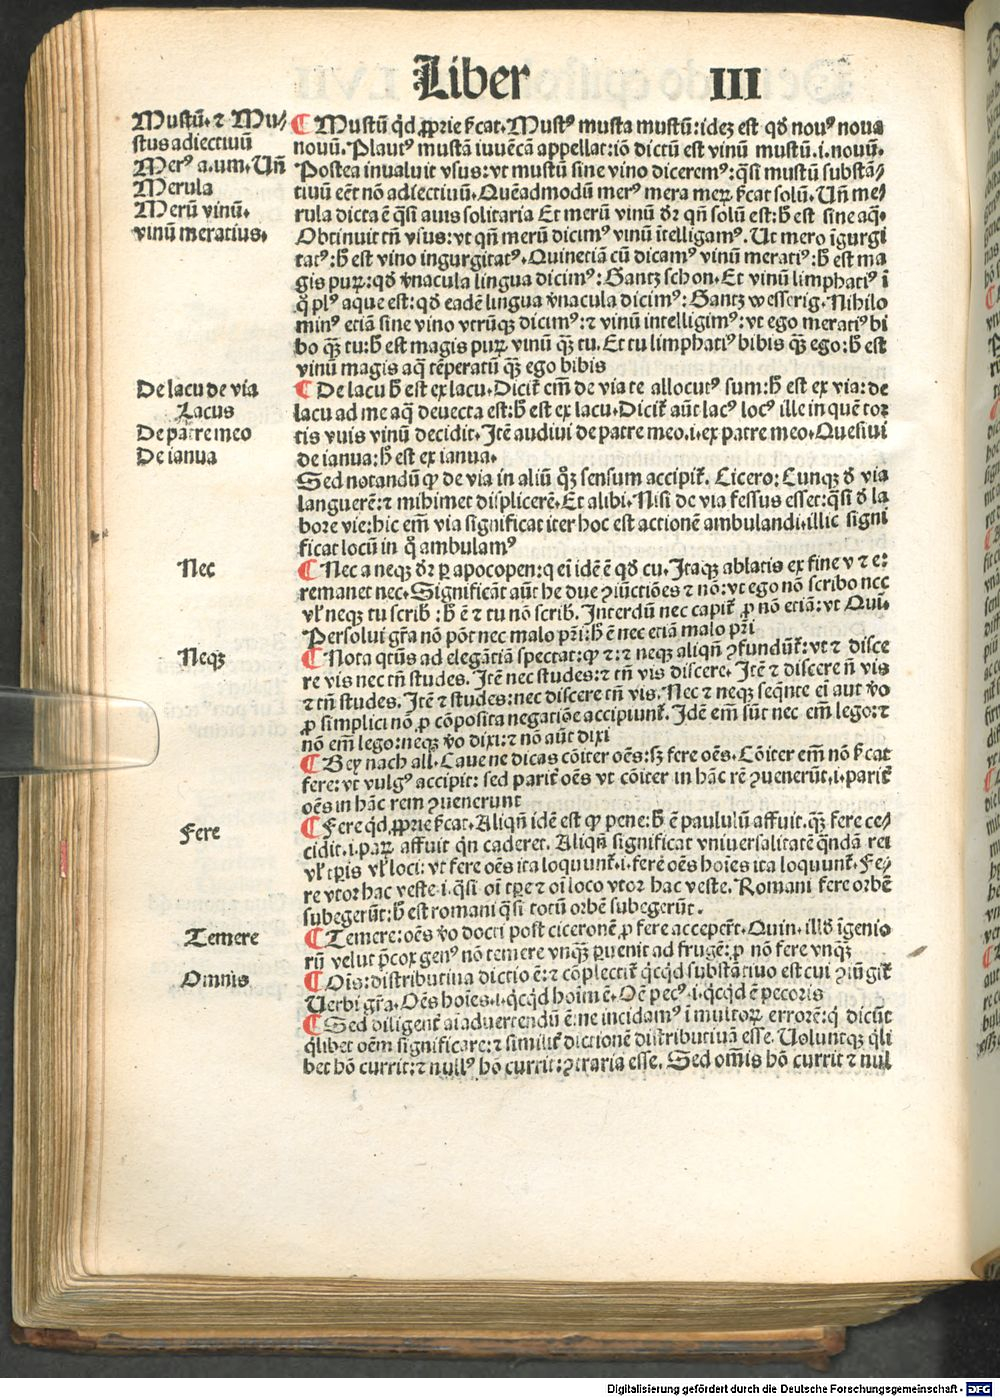 Liber III
Mustū. ⁊ Mu⸗
stus adiectiuū
Merꝰ a.um. Uñ
Merula
Merū vinū.
vinū meratius.
¶ Mustū qd ꝓprie sr̄cat. Mustꝰ musta mustū: idez est qđ nouꝰ noua
nouū. Plautꝰ mustā iuuēcā appellat: iō dictū est vinū mustū .i. nouū.
Postea inualuit vsus: vt mustū sine vino diceremꝰ: q̄si mustū substā⸗
tiuū eēt nō adiectiuū. Quēadmodū merꝰ mera meꝝ sr̄cat solū. Uñ me⸗
rula dicta ē q̄si auis solitaria Et merū vinū dr̄ qñ solū est: h̄ est sine aq̄.
Obtinuit tñ vsus: vt qñ merū dicimꝰ vinū ītelligamꝰ. Ut mero īgurgi
tatꝰ: h̄ est vino ingurgitatꝰ. Quinetiā cū dicamꝰ vinū meratiꝰ: h̄ est ma
gis puꝝ: qđ v̄nacula lingua dicimꝰ: Gantz schon. Et vinū limphatiꝰ ī
q̊ plꝰ aque est: qđ eadē lingua v̄nacula dicimꝰ: Gantz wesserig. Nihilo
minꝰ etiā sine vino vtrūqꝫ dicimꝰ: ⁊ vinū intelligimꝰ: vt ego meratiꝰ bi
bo qꝫ̄ tu: h̄ est magis puꝝ vinū qꝫ̄ tu. Et tu limphatiꝰ bibis qꝫ̄ ego: h̄ est
vinū magis aq̄ tēperatū qꝫ̄ ego bibis
De lacu de via
Lacus
De patre meo
De ianua
¶ De lacu h̄ est ex lacu. Dicit̃ em̄ de via te allocutꝰ sum: h̄ est ex via: de
lacu ad me aq̄ deuecta est: h̄ est ex lacu. Dicit̃ aūt lacꝰ locꝰ ille in quē tor
tis vuis vinū decidit. Itē audiui de patre meo .i. ex patre meo. Quesiui
de ianua: h̄ est ex ianua.
Sed notandū ꝙ de via in aliū qꝫ̄ sensum accipit̃. Cicero: Cunqꝫ đ via
languerē: ⁊ mihimet displicerē. Et alibi. Nisi de via fessus esset: q̄si đ la
bore vie: hic em̄ via significat iter hoc est actionē ambulandi. illic signi
ficat locū in q̊ ambulamꝰ
Nec
¶ Nec a neqꝫ dr̄ ꝑ apocopen: q ei idē ē qđ cu. Itaqꝫ ablatis ex fine v ⁊ e:
remanet nec. Significāt aūt he due ꝯiūctiōes ⁊ nō: vt ego nō scribo nec
vl̓ neqꝫ tu scrib̄ : h̄ ē ⁊ tu nō scrib̄. Interdū nec capit̃ ꝓ nō etiā: vt Qui.
Persolui gr̄a nō pōt nec malo pr̄i: h̄ ē nec etiā malo pr̄i
Neqꝫ
¶ Nota qtūs ad elegātiā spectat: ꝙ ⁊: ⁊ neqꝫ aliqñ ꝯfundūt̃: vt ⁊ disce
re vis nec tñ studes. Itē nec studes: ⁊ tñ vis discere. Itē ⁊ discere ñ vis
⁊ tñ studes. Itē ⁊ studes: nec discere tñ vis. Nec ⁊ neqꝫ seqñte ei aut v̊o
ꝓ simplici nō ꝓ cōposita negatiōe accipiunt̃. Idē em̄ sūt nec em̄ lego: ⁊
nō em̄ lego: neqꝫ v̊o dixi: ⁊ nō aūt dixi
¶ Bey nach all. Caue ne dicas cōiter oēs: sꝫ fere oēs. Cōiter em̄ nō sr̄cat
fere: vt vulgꝰ accipit: sed parit̃ oēs vt cōiter in hāc rē ꝯuenerūt .i. parit̃
oēs in hāc rem ꝯuenerunt
Fere
¶ Fere qd ꝓprie sr̄cat. Aliqñ idē est ꝙ pene: h̄ ē paululū affuit. qꝫ̄ fere ce⸗
cidit .i. paꝝ affuit qn caderet. Aliqñ significat vniuersalitatē q̄ndā rei
vl̓ tp̄is vl̓ loci: vt fere oēs ita loquunt̃ .i. ferē oēs hoīes ita loquunt̃. Fe⸗
re vtor hac veste .i. q̄si oī tp̄e ⁊ oī loco vtor hac veste. Romani fere orbē
subegerūt: h̄ est romani q̄si totū orbē subegerūt.
Temere
¶ Temere: oēs v̊o docti post ciceronē ꝓ fere acceper̄t. Quin. illđ īgenio
rū velut p̄cox genꝰ nō temere vnqꝫ̄ ꝑuenit ad frugē: ꝓ nō fere vnqꝫ̄
Omnis
¶ Oīs: distributiua dictio ē: ⁊ cōplectit̃ qcqd substātiuo est cui ꝯiūgit̃
Uerbi gr̄a. Oēs hoīes .i. qcqd hoim̄ ē. Oē pecꝰ .i. qcqd ē pecoris
¶ Sed diligent̃ aīaduertendū ē: ne incidamꝰ ī multoꝝ errorē: q̇ dicūt
qlibet oēm significare: ⁊ similit̃ dictionē distributiuā esse. Uoluntqꝫ qli
bet hō currit: ⁊ nullꝰ hō currit: ꝯtraria esse. Sed om̄is hō currit ⁊ nul
Digitalisierung gefördert durch die Deutsche Forschungsgemeinschaft - DFG